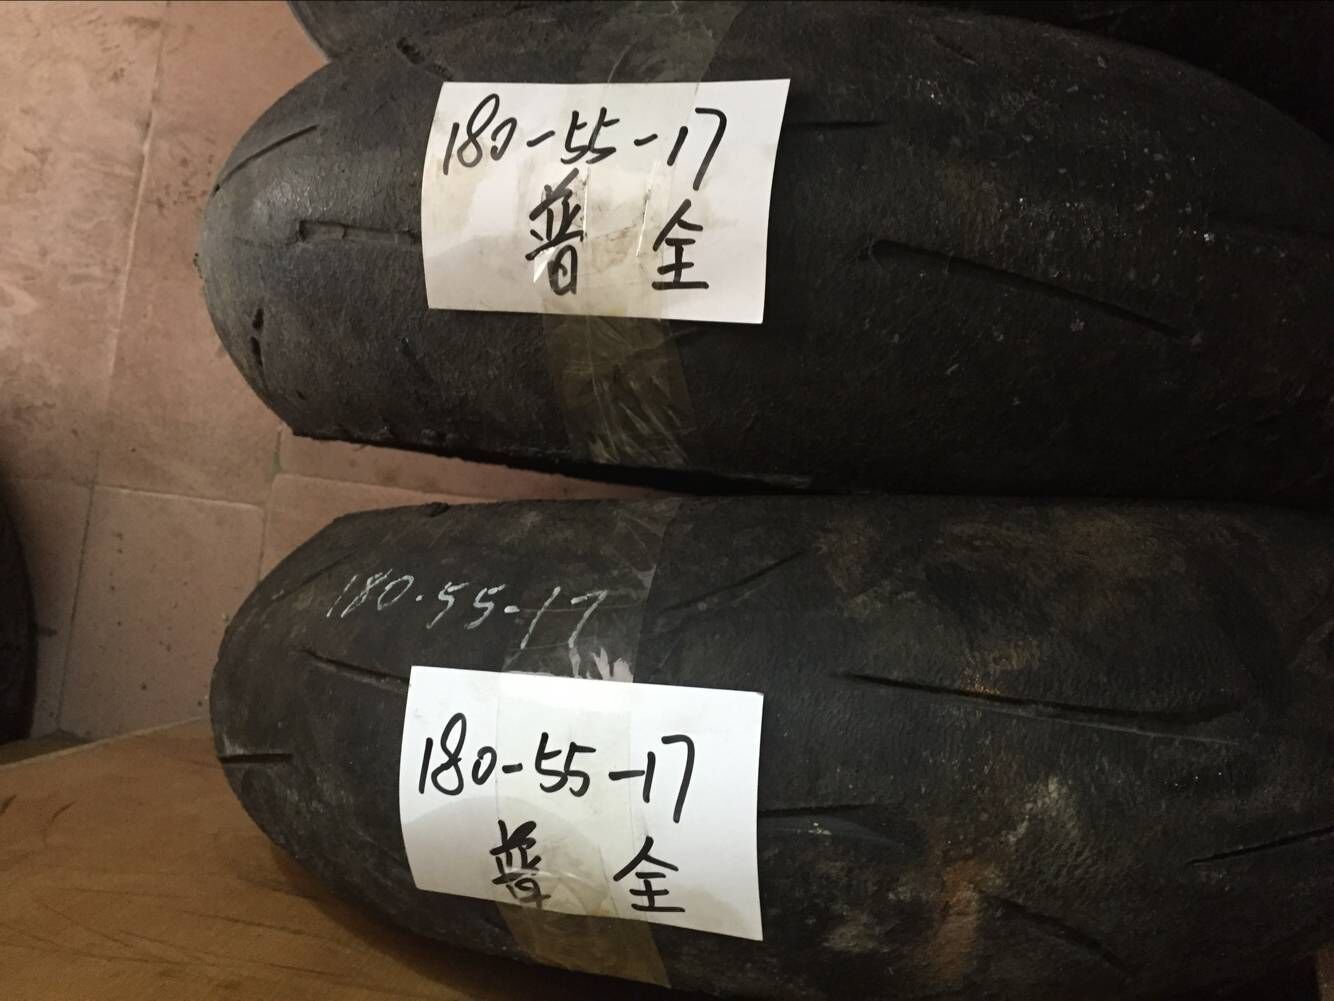 180-55-17
普 全
180-55-17
180-55-17
普 全